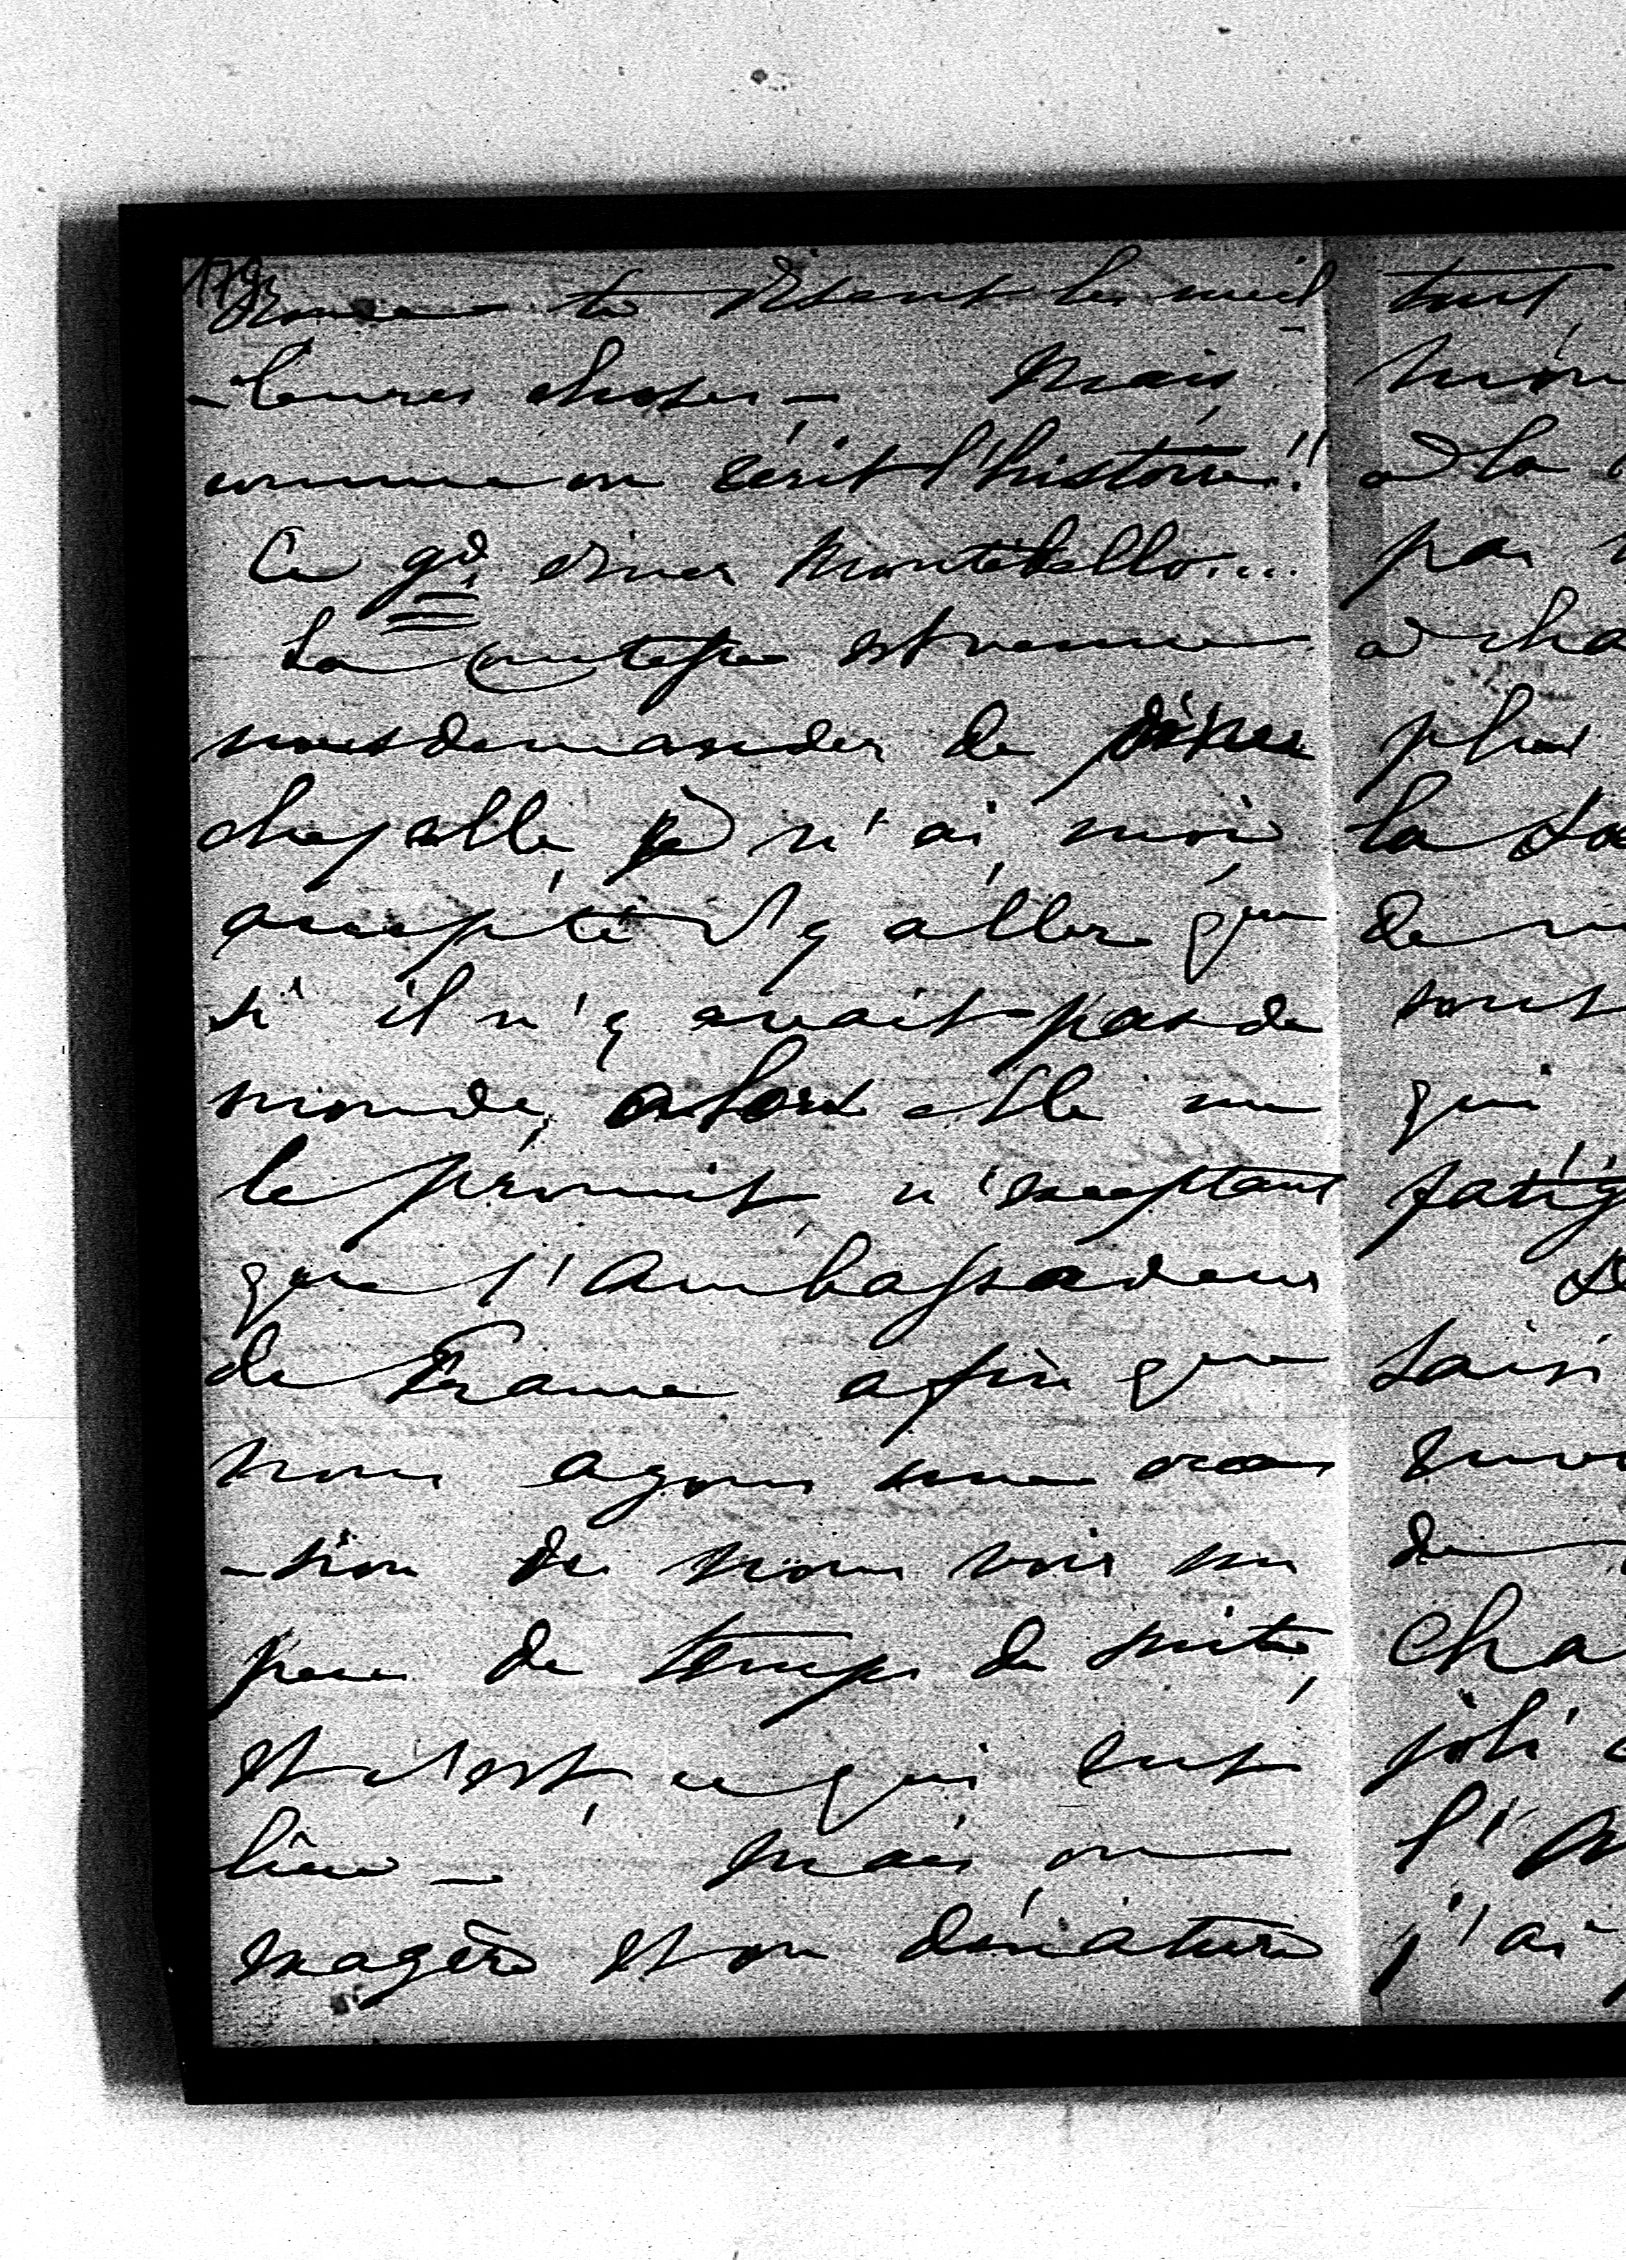 te disent les meil
-leures choses - Mais
comme on écrit l'histoire!!
Ce gd diner Montebello....
La Comtesse est venue
nous demander de diner
chez elle, je n'ai, moi,
accepté d'y aller que
si il n'y avait pas de
monde, alors elle me
le promit, n'exceptant
que l'Ambassadeur
de France afin que
nous ayons une occa
-sion de nous voir un
peu de temps de suite,
et c'est, ce qui eut
lieu - Mais on
exagère et on dénature
tout
à la
par
à cha
plus
la
de
sont
qui
fatig
De
saisi
de
cha
joli
l'
j'ai